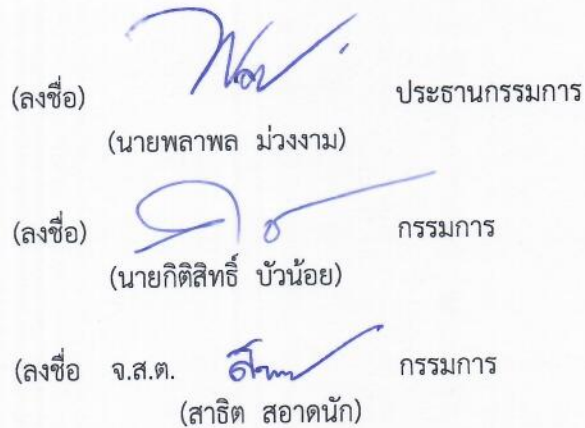 (ลงชื่อ) ประธานกรรมการ
(นายพลาพล ม่วงงาม)
(ลงชื่อ) กรรมการ
(นายกิติสิทธิ์ บัวน้อย)
(ลงชื่อ จ.ส.ต. กรรมการ
(สาธิต สอาดนัก)